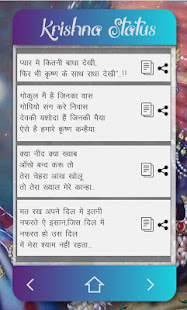 Krishna Status
प्यार मे कितनी बाधा देखी,
फिर भी कृष्ण के साथ राधा देखी".!!
गोकुल मैं है जिनका वास
गोपियो संग करे निवास
देवकी यशोदा हैं जिनकी मैया
ऐसे है हमारे कृष्ण कन्हैया
क्या नींद क्या ख्वाब
आँखे बन्द करू तो
तेरा चेहरा आख खोलू
तो तेरा ख्याल मेरे कान्हा..
मत रख अपने दिल मे इतनी
नफरते ऐ इसान,जिस दिल में
नफरत हो उस दिल
में मेरा श्याम नही रहता..